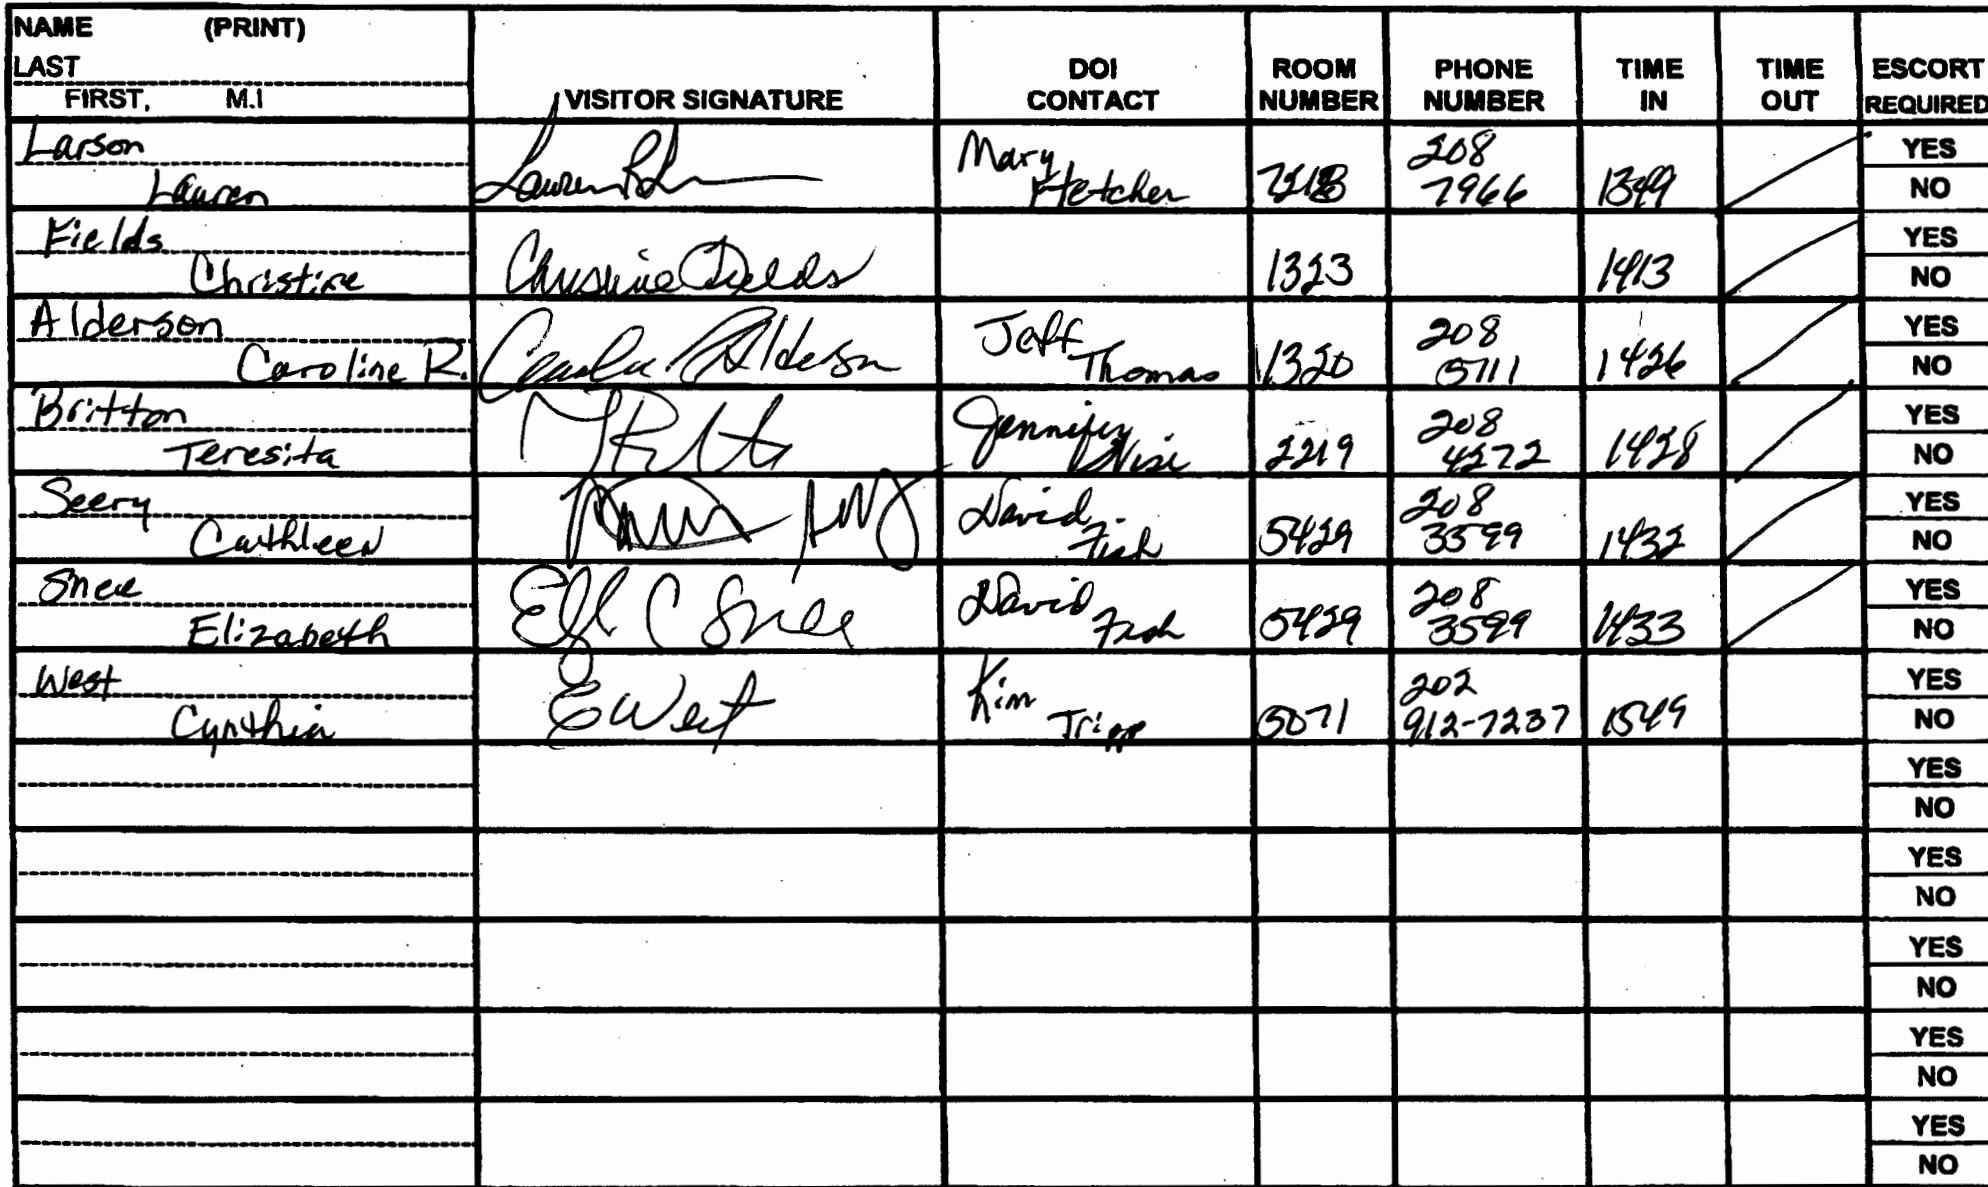 NAME (PRINT)
LAST
FIRST, M.I
VISITOR SIGNATURE
DOI
CONTACT
ROOM
NUMBER
PHONE
NUMBER
TIME
IN
TIME
OUT
ESCORT
REQUIRED
Larson
Lauren
Mary
Fletcher
208
7966
1349
YES
NO
Fields
Christine
Christine Fields
1323
1413
YES
NO
Alderson
Caroline R.
Alderson
Jeff
Thomas
1320
208
5711
1426
YES
NO
Britton
Teresita
Jennifer
2219
208
4272
1428
YES
NO
Seery
Cathleen
David
Fish
5429
208
3599
1432
YES
NO
Snee
Elizabeth
C Snee
David
Fish
5429
208
3599
1433
YES
NO
West
Cynthia
C West
Kim
Tripp
5071
202
912-7237
1549
YES
NO
YES
NO
YES
NO
YES
NO
YES
NO
YES
NO